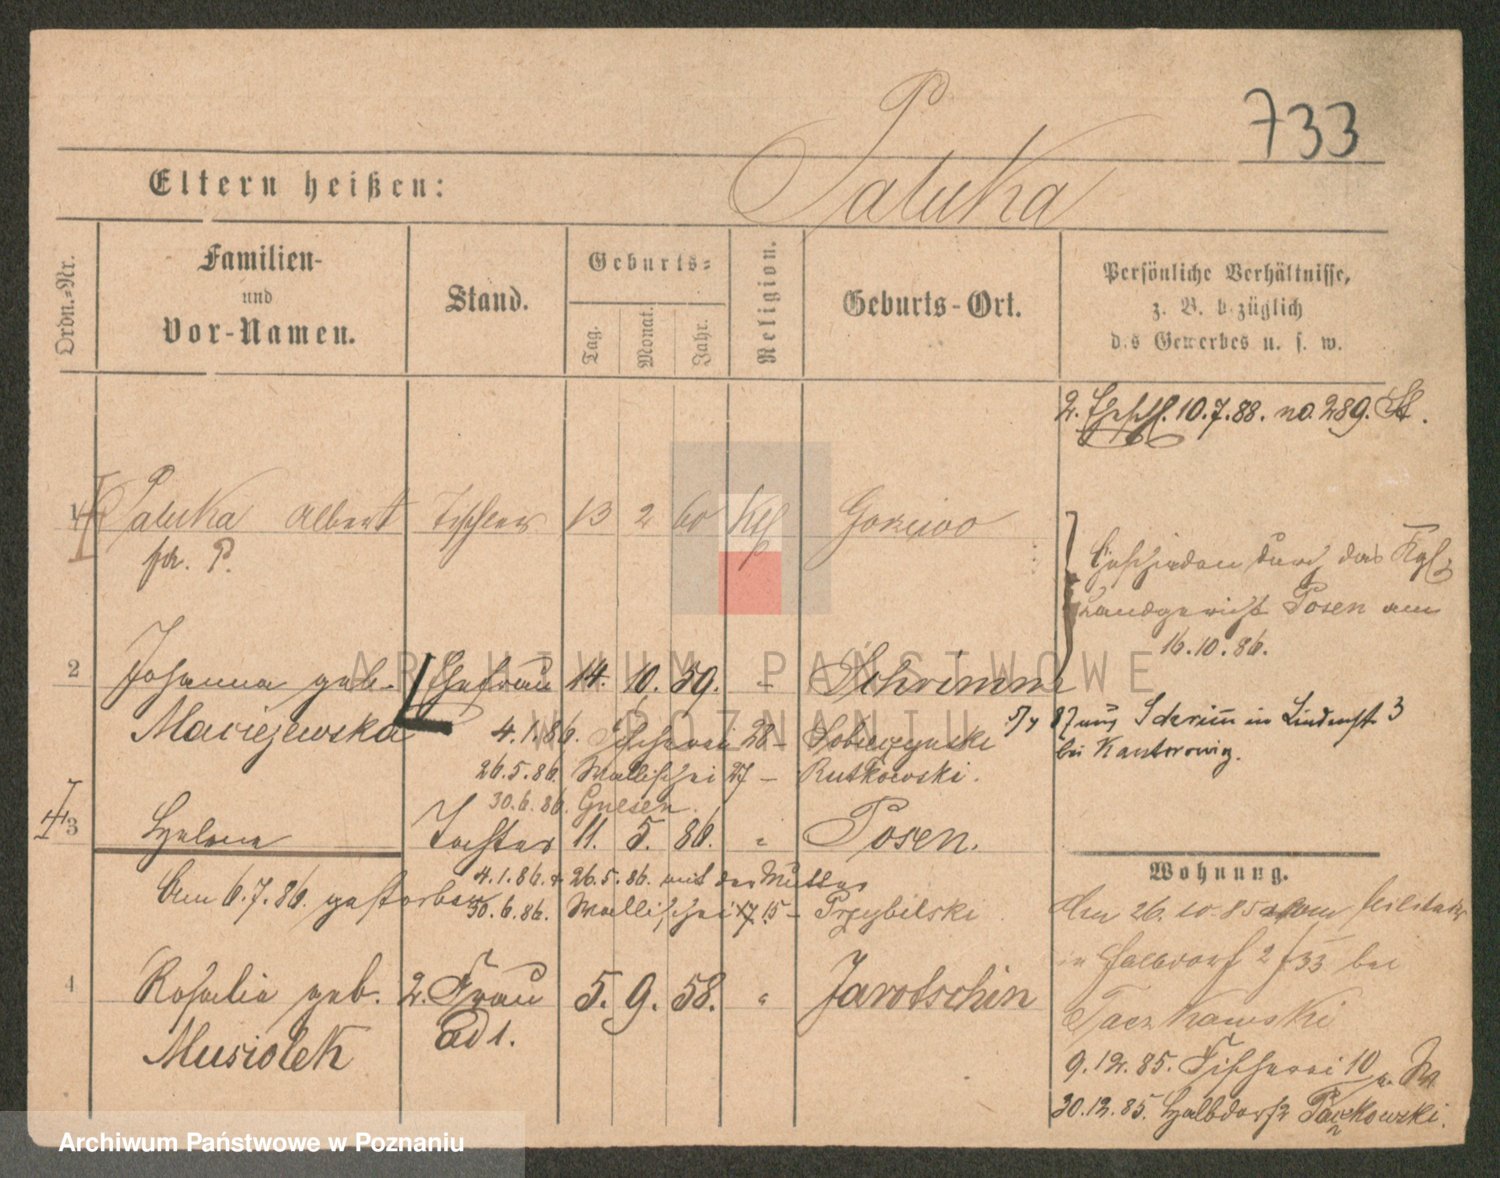 733
Paluka
Eltern heißen:
Ordn.-Nr.
Familien-
und
Vor-Namen.
Stand.
Geburts-
Tag.
Monat.
Jahr.
Religion.
Geburts-Ort.
Persönliche Verhältnisse,
z. B. bezüglich
des Gewerbes u. s. w.
2. 10.7.88. no. 289.
1 Paluka Albert Tischler 13 2 60 Kth
P.
Geschieden durch das Kgl.
Landgericht Posen am
16.10.86.
2 Johanna geb. Ehefrau 14. 10. 59. Schrimm
Maciejewska
4.1.86. Fischerei 28 –
87 aus in 3
bei Kantorowicz.
26.5.86. Wallischei 27 – Rutkowski.
30.6.86. Gnesen.
3 Helene Tochter 11. 5. 86. " Posen.
Wohnung.
4.1.86. 26.5.86. mit der Mutter
Am 6.7.86. gestorben
30.6.86. Wallischei 15 – Przybilski
Am 26.10.85 vom Militär
in Halbdorf 2 33 bei
4 Rosalie geb. 2. Frau 5. 9. 58. " Jarotschin
Musiolek ad 1.
Paczkowski
9.12.85. Fischerei 10
30.12.85. Halbdorf Paczkowski.
ARCHIWUM PAŃSTWOWE
W POZNANIU
Archiwum Państwowe w Poznaniu